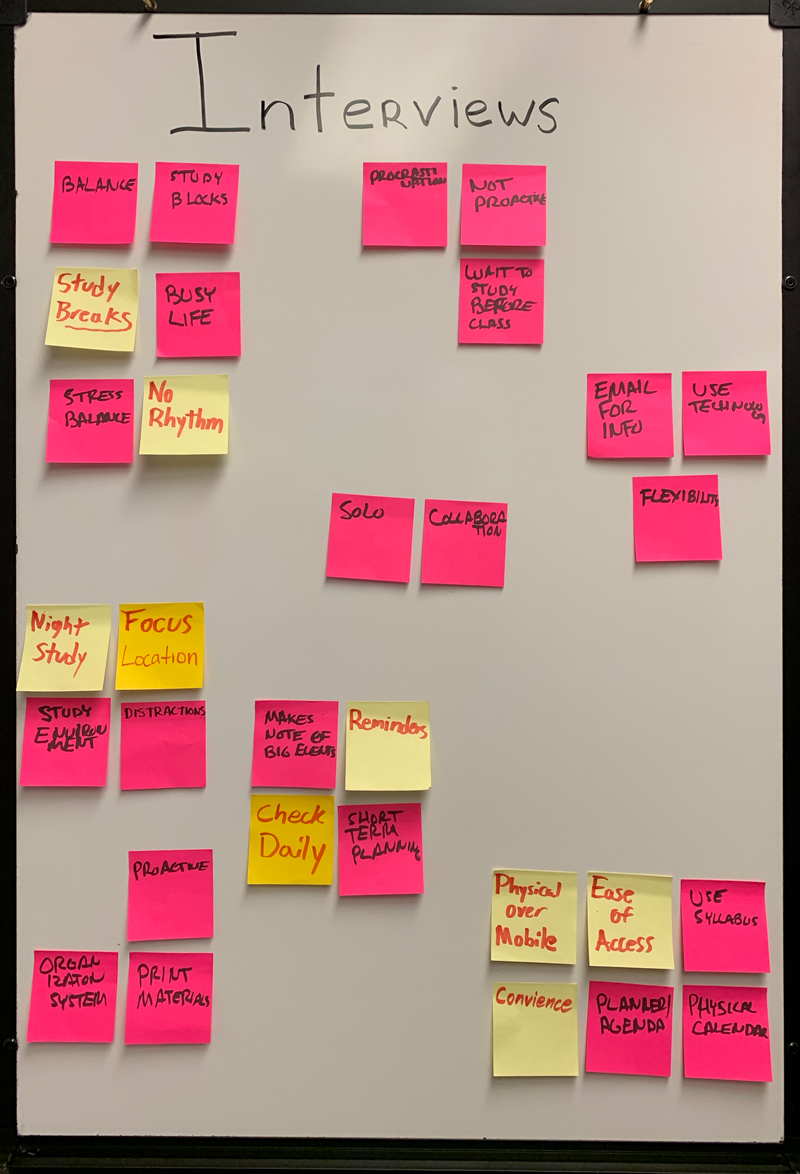 Interviews
BALANCE
STUDY
BLOCKS
Study
Breaks
BUSY
LIFE
STRESS
BALANCE
No
Rhythm
PROCRASTI
NATION
NOT
PROACTIVE
WAIT TO
STUDY
BEFORE
CLASS
EMAIL
FOR
INFO
USE
TECHNOLO
GY
FLEXIBILITY
SOLO
COLLABORA
TION
Night
Study
FOCUS
Location
STUDY
ENVIRON
MENT
DISTRACTIONS
MAKES
NOTE OF
BIG EVENTS
Reminders
Check
Daily
SHORT
TERM
PLANNING
PROACTIVE
ORGAN
IZATON
SYSTEM
PRINT
MATERIALS
Physical
over
Mobile
Ease
of
Access
USE
SYLLABUS
Convience
PLANNER/
AGENDA
PHYSICAL
CALENDAR